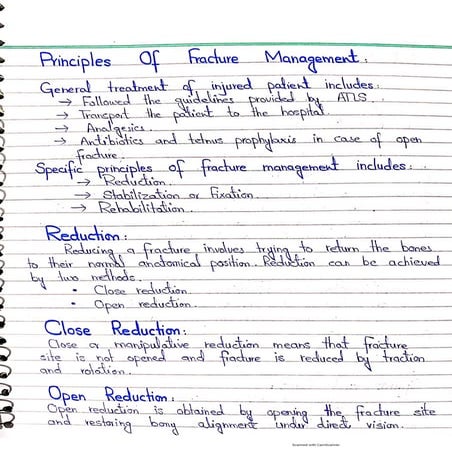 Principles Of Fracture Management:
General treatment of injured patient includes:
→ Followed the guidelines provided by ATLS.
→ Transport the patient to the hospital.
→ Analgesics.
→ Antibiotics and tetnus prophylaxis in case of open
fracture.
Specific principles of fracture management includes:
→ Reduction.
→ Stabilization or Fixation.
→ Rehabilitation.
Reduction:
Reducing a fracture involves trying to return the bones
to their normal anatomical position. Reduction can be achieved
by two methods.
• Close reduction
• Open reduction.
Close Reduction:
Close or manipulative reduction means that fracture
site is not opened and fracture is reduced by traction
and rotation.
Open Reduction:
Open reduction is obtained by opening the fracture site
and restoring bony alignment under direct vision.
Scanned with CamScanner